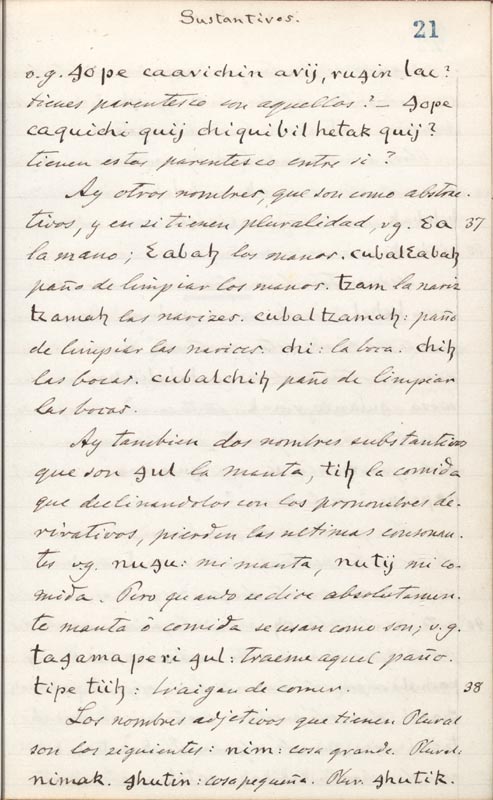 Sustantivos.
21
v.g. 4o pe caavichin avij, ru4in lac?
tienes parentesco con aquellos? — 4ope
caquichi quij chiquibil hetak quij?
tienen estos parentesco entre si?
Ay otros nombres, que son como abstrac-
tivos, y en si tienen pluralidad, vg. Ɛa 37
la mano; Ɛabaꜩ los manos. cubalƐabaꜩ
paño de limpiar los manos. tzam la nariz
tzamaꜩ las narizes. cubaltzamaꜩ: paño
de limpiar las narices. chi: la boca. chiꜩ
las bocas. cubalchiꜩ paño de limpiar
las bocas.
Ay tambien dos nombres substantivos
que son 4ul la manta, tiꜩ la comida
que declinandolos con los pronombres de-
rivativos, pierden las ultimas consonan-
tes vg. nu4u: mi manta, nutij mi co-
mida. Pero quando se dice absolutamen-
te manta ó comida se usan como son; v.g.
ta4ama peri 4ul: traeme aquel paño.
tipe tiiꜩ: traigan de comer. 38
Los nombres adjetivos que tienen Plural
son los siguientes: nim: cosa grande. Plural:
nimak. 4hutin: cosa pequeña. Plur. 4hutik.